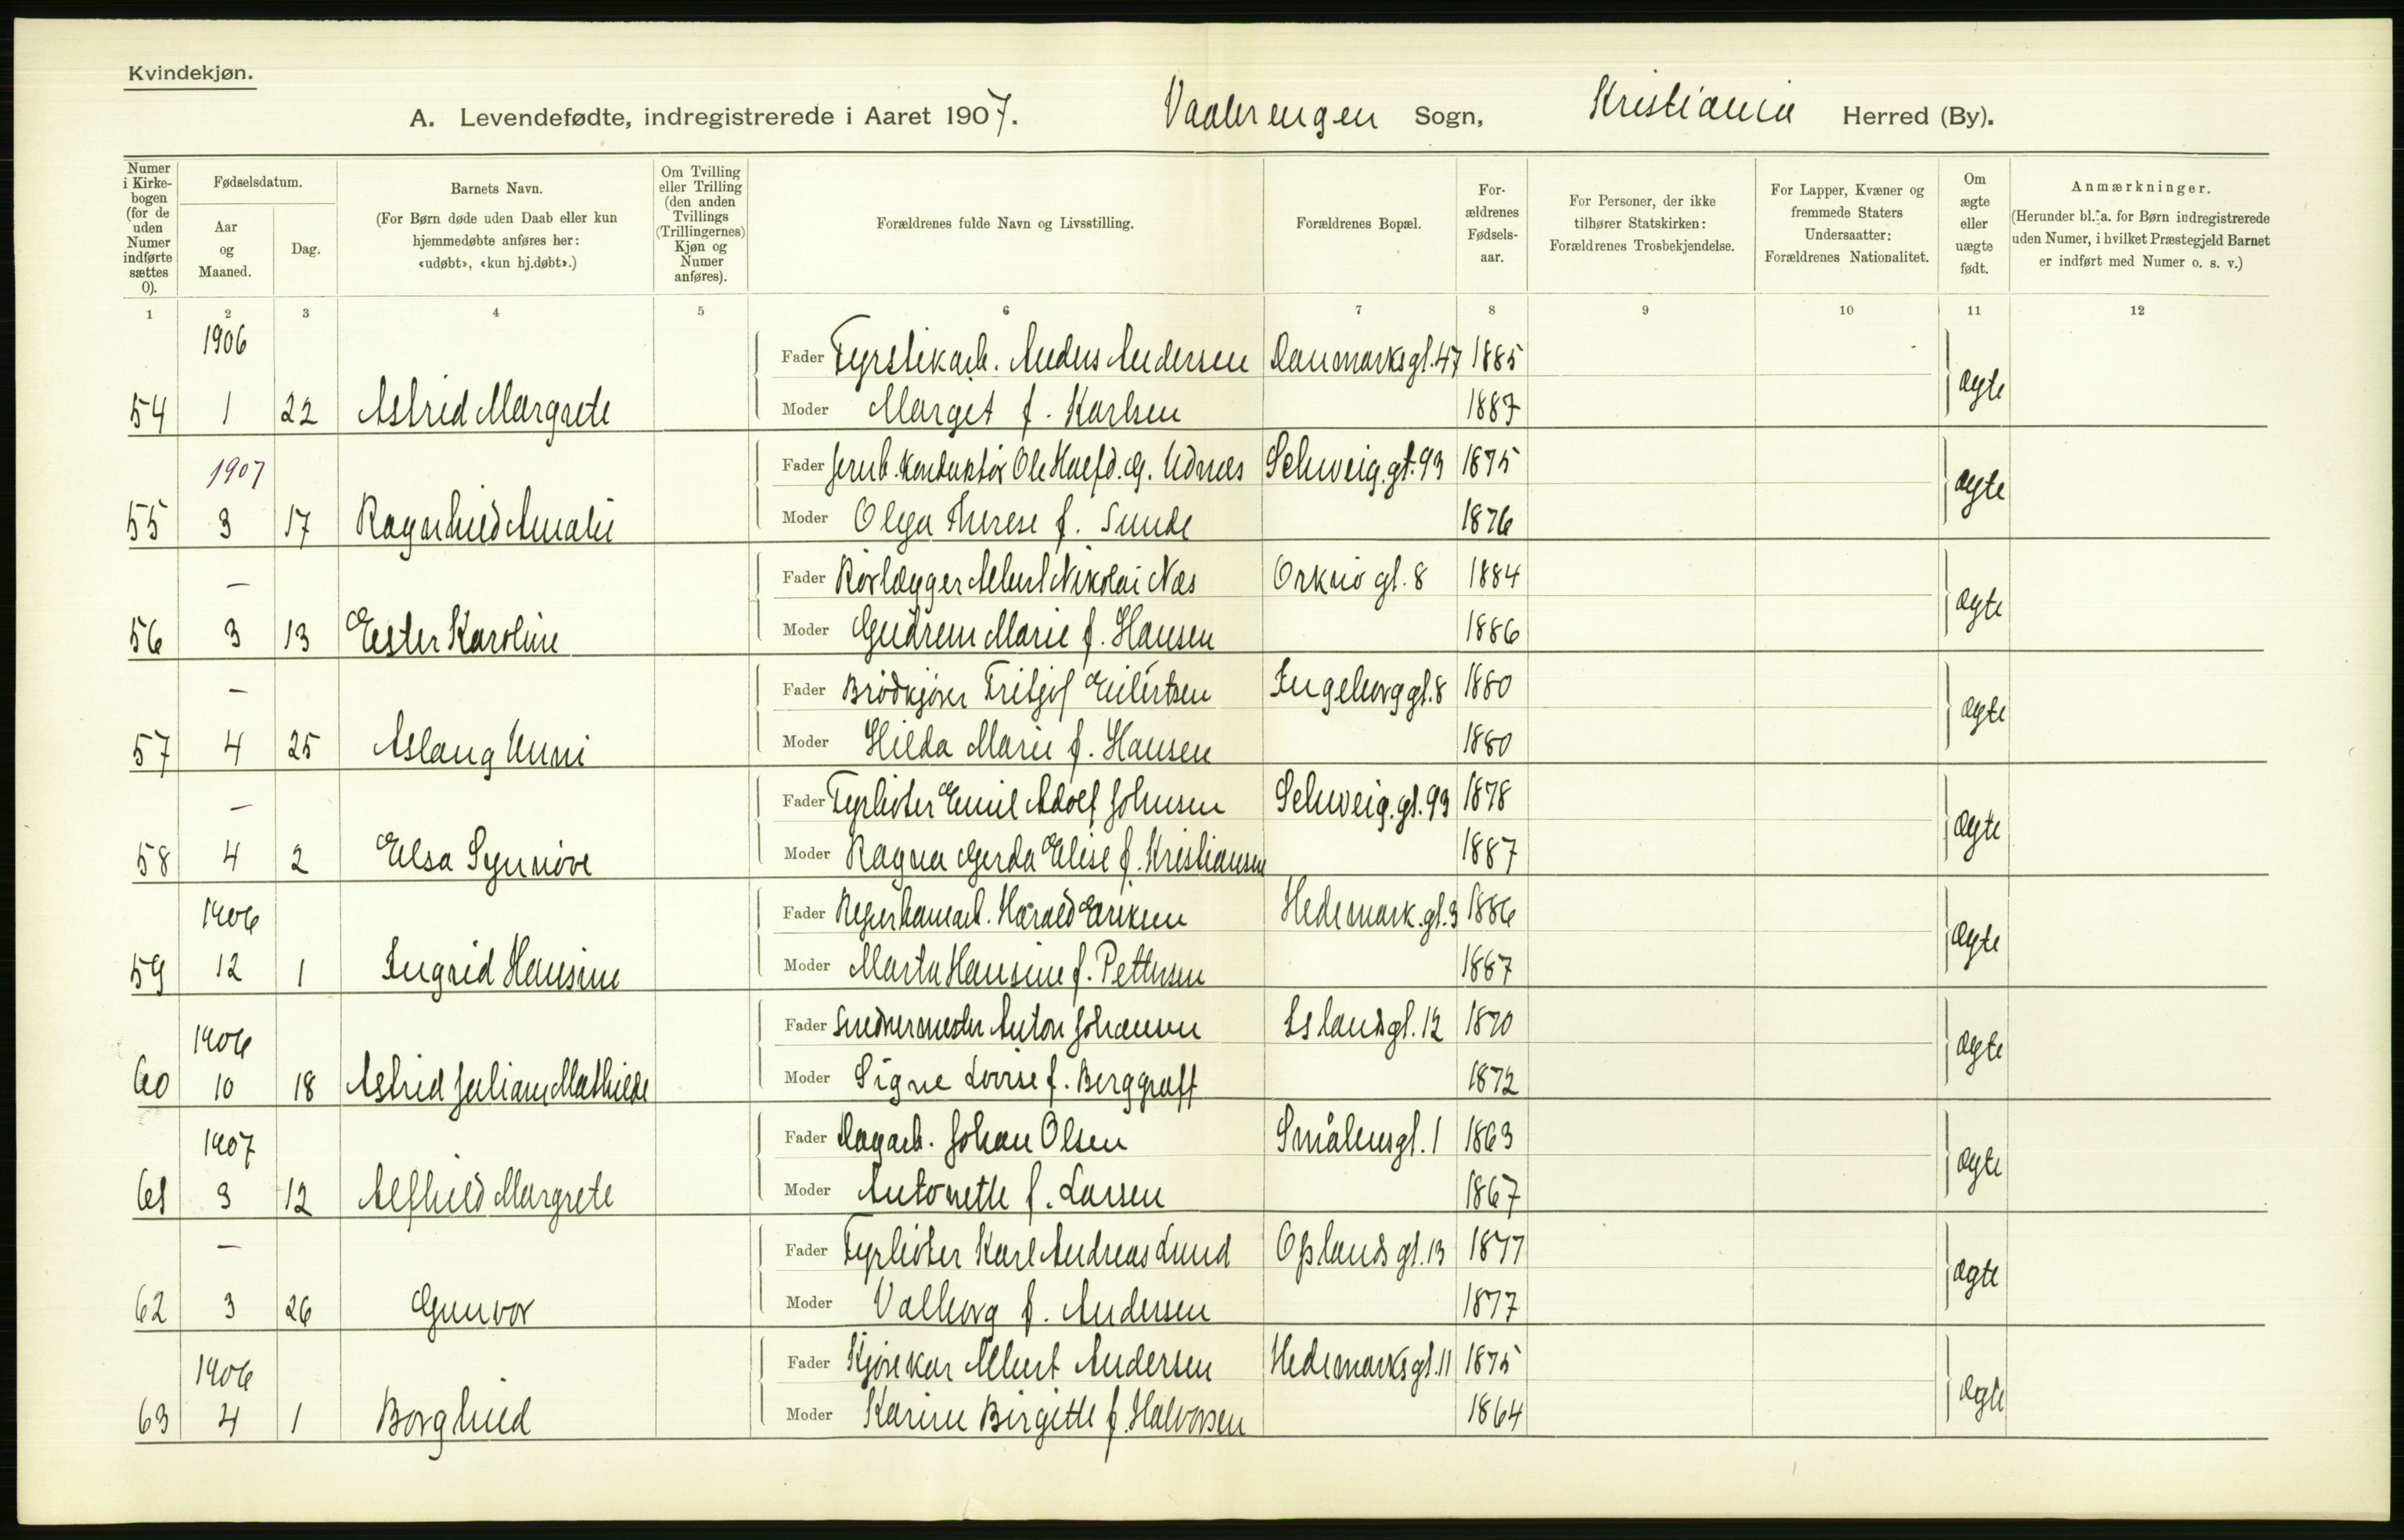 Kvindekjøn.
A. Levendefødte, indregistrerede i Aaret 1907. Vaalerengen Sogn, Kristiania Herred (By).
Numer i Kirkebogen (for de uden Numer indførte sættes 0).
Fødselsdatum.
Aar og Maaned.
Dag.
Barnets Navn.
(For Børn døde uden Daab eller kun hjemmedøbte anføres her: «udøbt», «kun hj.døbt».)
Om Tvilling eller Trilling (den anden Tvillings (Trillingernes) Kjøn og Numer anføres).
Forældrenes fulde Navn og Livsstilling.
Forældrenes Bopæl.
Forældrenes Fødselsaar.
For Personer, der ikke tilhører Statskirken: Forældrenes Trosbekjendelse.
For Lapper, Kvæner og fremmede Staters Undersaatter: Forældrenes Nationalitet.
Om ægte eller uægte født.
Anmærkninger.
(Herunder bl. a. for Børn indregistrerede uden Numer, i hvilket Præstegjeld Barnet er indført med Numer o. s. v.)
1 2 3 4 5 6 7 8 9 10 11 12
1906 Fader Fyrstikarb. Anders Andersen Danmarksgt. 47 1885 ægte
54 1 22 Astrid Margrete Moder Marget f. Karlsen 1887
1907 Fader Jernb. Konduktør Ole Udnæs Schweig. gt. 93 1875 ægte
55 3 17 Ragnhild Amalie Moder Olga Therese f. Sunde 1876
— Fader Rørlægger Albert Nikolai Næs Orknø gt. 8 1884 ægte
56 3 13 Ester Karoline Moder Gudrun Marie f. Hansen 1886
— Fader Brødkjører Fritjof Eilertsen Ingeborg gt. 8 1880 ægte
57 4 25 Aslaug Unni Moder Hilda Marie f. Hansen 1880
— Fader Fyrbøter Emil Adolf Johnsen Schweig. gt. 93 1878 ægte
58 4 2 Elsa Synnøve Moder Ragna Gerda Elise f. Kristiansen 1887
1906 Fader Harald Eriksen Hedemark. gt. 3 1886 ægte
59 12 1 Ingrid Hansine Moder Marta Hansine f. Pettersen 1887
1906 Fader Snedkermester Anton Johansen Islandsgt. 12 1870 ægte
60 10 18 Astrid Juliane Mathilde Moder Signe Lovise f. Berggraff 1872
1907 Fader Dagarb. Johan Olsen Smålensgt. 1 1863 ægte
61 3 12 Alfhild Margrete Moder Antonette f. Larsen 1867
— Fader Fyrbøter Karl Andreas Lund Oplands gt. 13 1877 ægte
62 3 26 Gunvor Moder Valborg f. Andersen 1877
1906 Fader Kjørekar Albert Andersen Hedemarksgt. 11 1875 ægte
63 4 1 Borghild Moder Karine Birgitte f. Halvorsen 1864